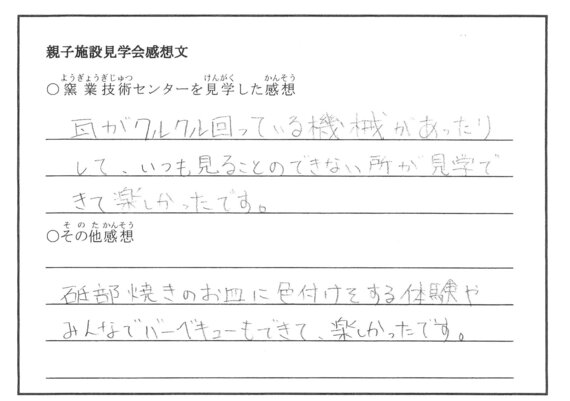 親子施設見学会感想文
ようぎょうぎじゅつ けんがく かんそう
○窯業技術センターを見学した感想
瓦がクルクル回っている機械があったり
して、いつも見ることのできない所が見学で
きて楽しかったです。
そのたかんそう
○その他感想
砥部焼きのお皿に色付けをする体験や
みんなでバーベキューもできて、楽しかったです。